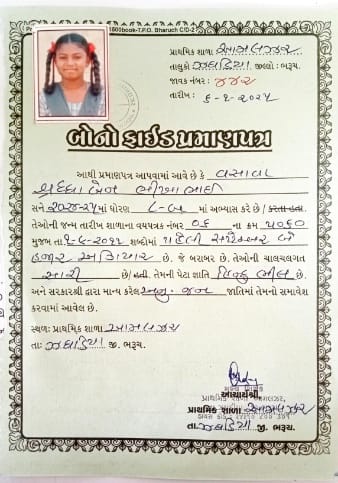 1800book-T.P.O. Bharuch C/D-2
પ્રાથમિક શાળા આમલઝર
તાલુકો ઝઘડિયા જીલ્લો : ભરૂચ.
જાવક નંબર :
તારીખ : ૬-૧-૨૦૨૫
બોનોફાઈડ પ્રમાણપત્ર
આથી પ્રમાણપત્ર આપવામાં આવે છે કે વસાવા
શ્રદ્ધાબેન
સને ૨૦૨૪-૨૫માં ધોરણ ૮-બ માં અભ્યાસ કરે છે / કરતા હતા.
તેઓની જન્મ તારીખ શાળાના વયપત્રક નંબર ૦૬ ના ક્રમ ૫૦૬૦
મુજબ તા. શબ્દોમાં પહેલી સપ્ટેમ્બર બે
હજાર અગિયાર છે. જે બરાબર છે. તેઓની ચાલચલગત
સારી છે/ હતી. તેમની પેટા જ્ઞાતિ હિન્દુ ભીલ છે.
અને સરકારશ્રી દ્વારા માન્ય કરેલ અનુ. જન જાતિમાં તેમનો સમાવેશ
કરવામાં આવેલ છે.
સ્થળ: પ્રાથમિક શાળા આમલઝર
તા: ઝઘડિયા જી. ભરૂચ.
આચાર્યશ્રી,
પ્રાથમિક શાળા આમલઝર
તા. ઝઘડિયા જી. ભરૂચ.